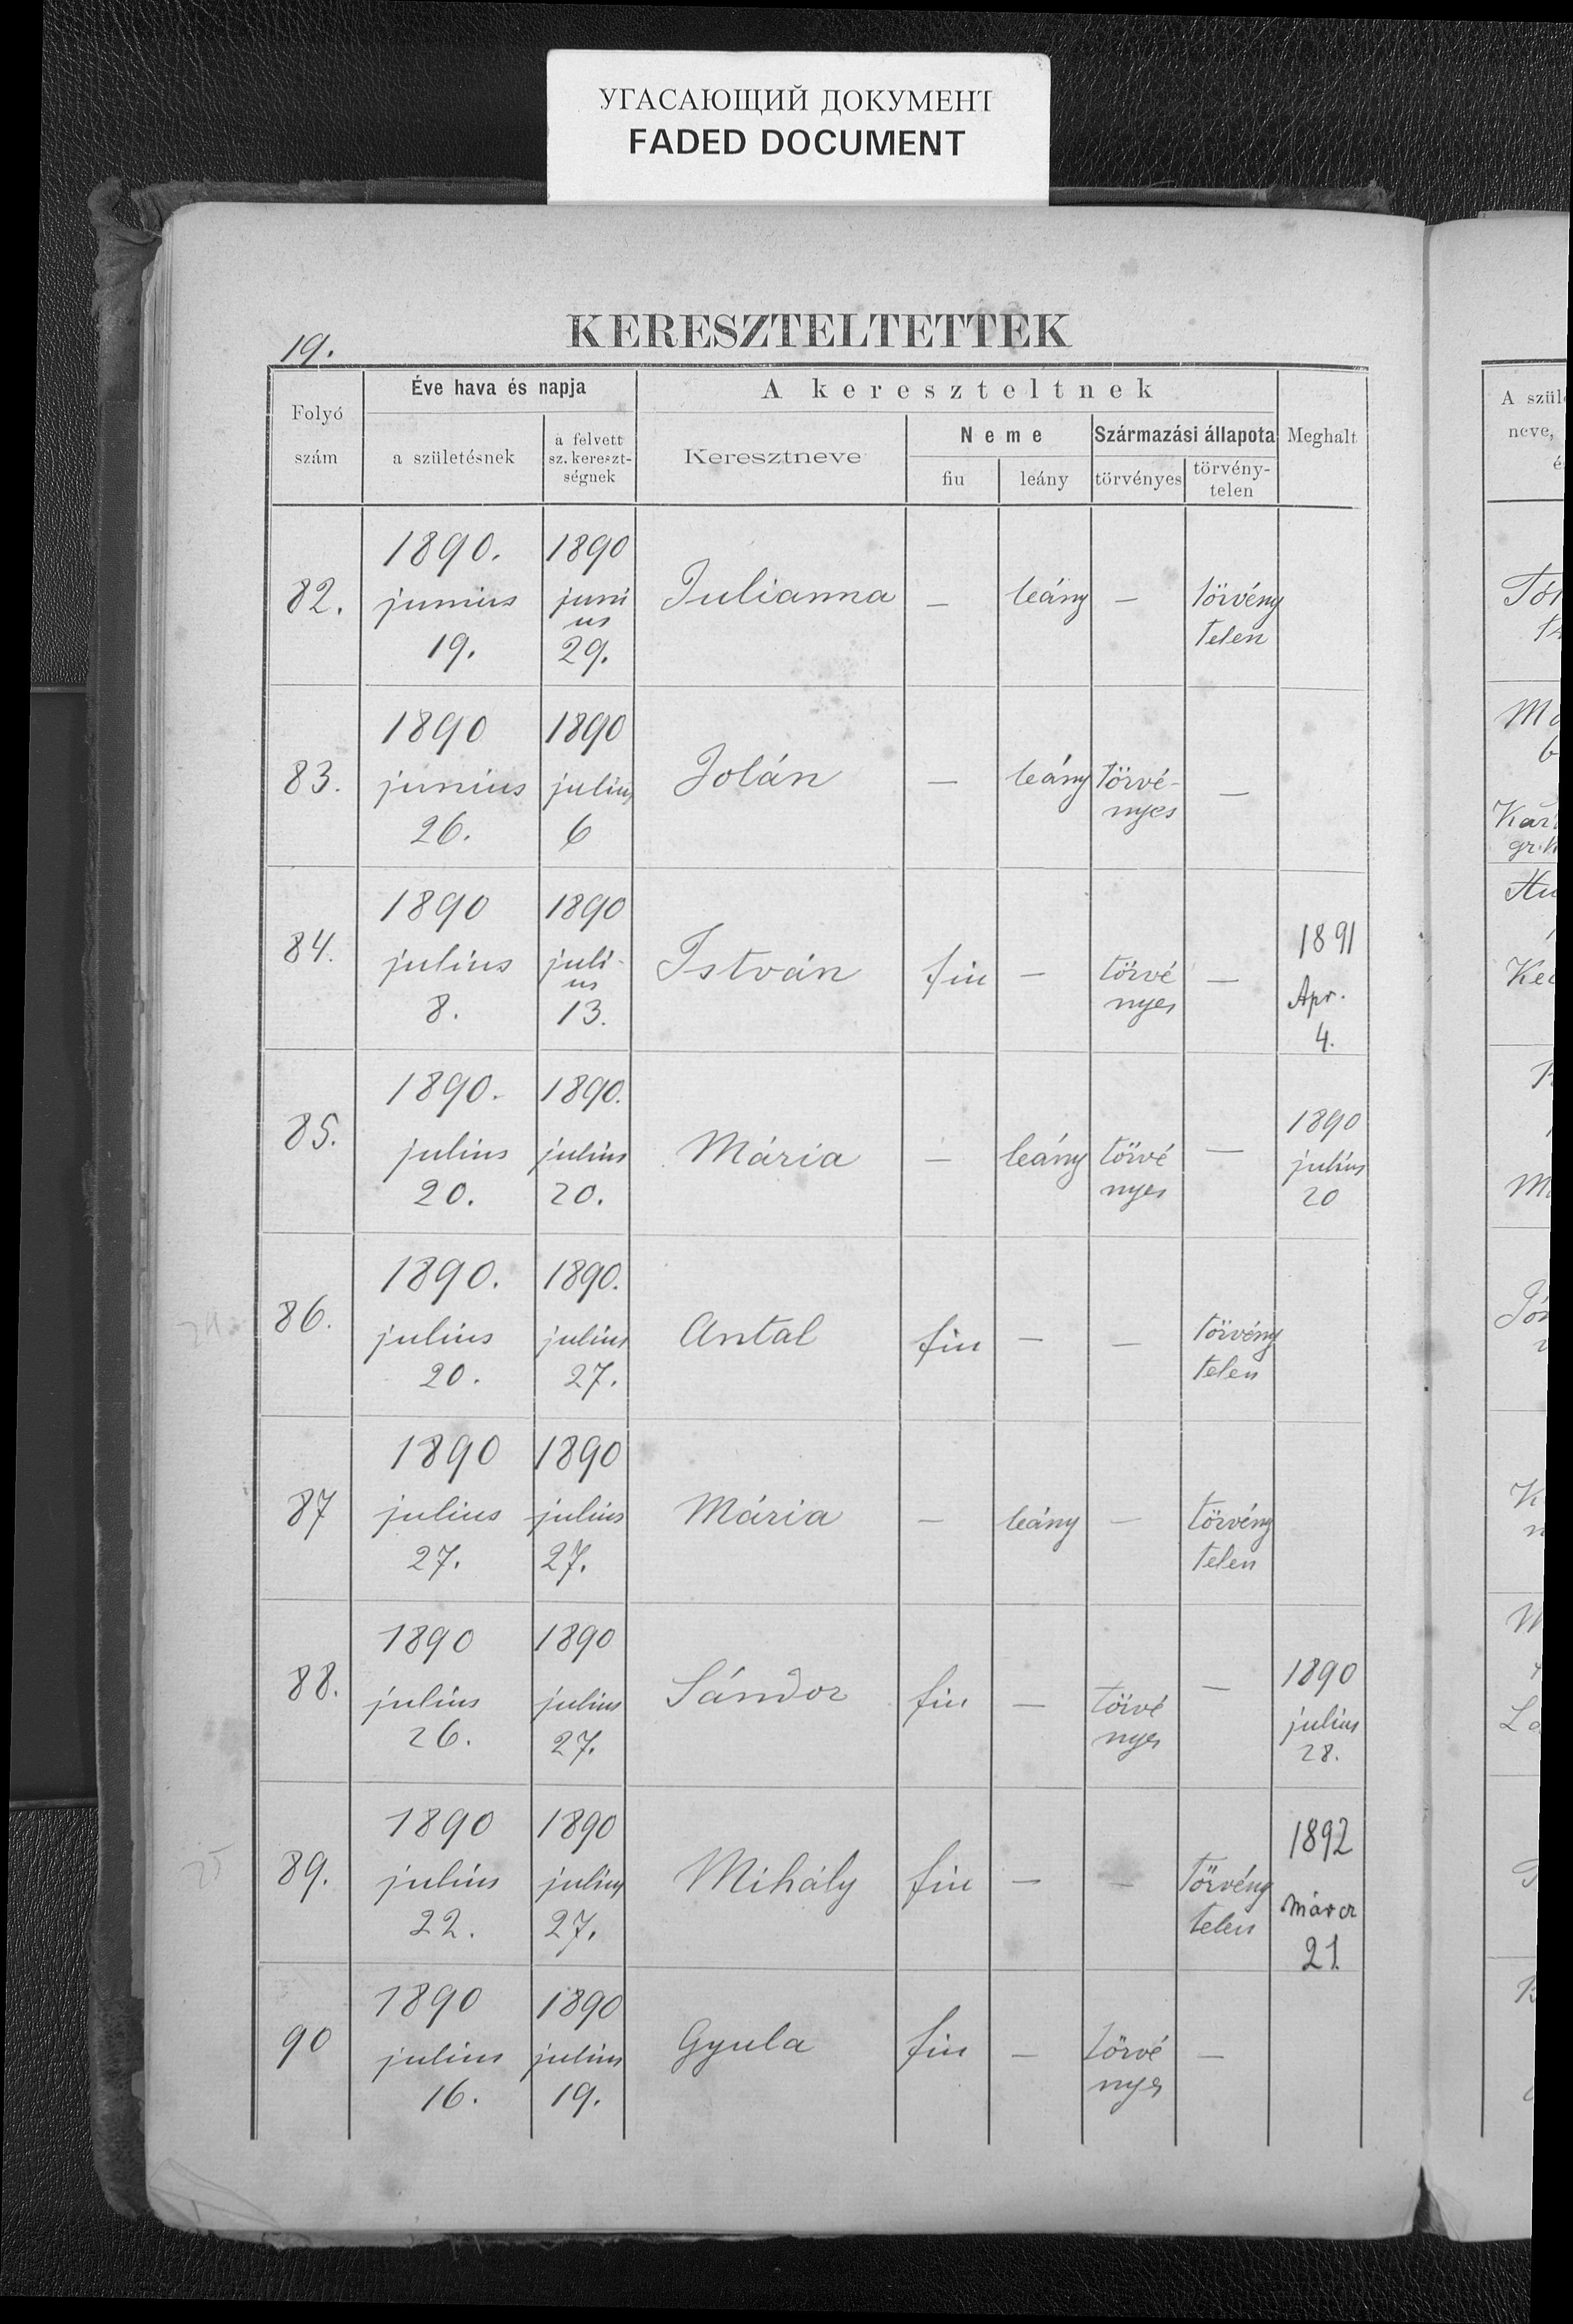 УГАСАЮЩИЙ ДОКУМЕНТ
FADED DOCUMENT
KERESZTELTETTEK
19.
Folyó szám
Éve hava és napja
a születésnek
a felvett sz. kereszt-ségnek
A kereszteltnek
Keresztneve
Neme
fiu
leány
Származási állapota
törvényes
törvény-telen
Meghalt
82.
1890. junius 19.
1890 juni us 29.
Julianna
—
leány
—
törvény telen
83.
1890 junius 26.
1890 julius 6
Jolán
—
leány
törvé- nyes
—
84.
1890 julius 8.
1890 juli- us 13.
István
fiu
—
törvé nyes
—
1891 Apr. 4.
85.
1890. julius 20.
1890. julius 20.
Mária
—
leány
törvé nyes
—
1890 julius 20
86.
1890. julius 20.
1890. julius 27.
Antal
fiu
—
—
törvény telen
87
1890 julius 27.
1890 julius 27.
Mária
—
leány
—
törvény telen
88.
1890 julius 26.
1890 julius 27.
Sándor
fiu
—
törvé nyes
—
1890 julius 28.
89.
1890 julius 22.
1890 julius 27.
Mihály
fiu
—
—
törvény telen
1892 márcz 21.
90
1890 julius 16.
1890 julius 19.
Gyula
fiu
—
törvé nyes
—
A szül
neve,